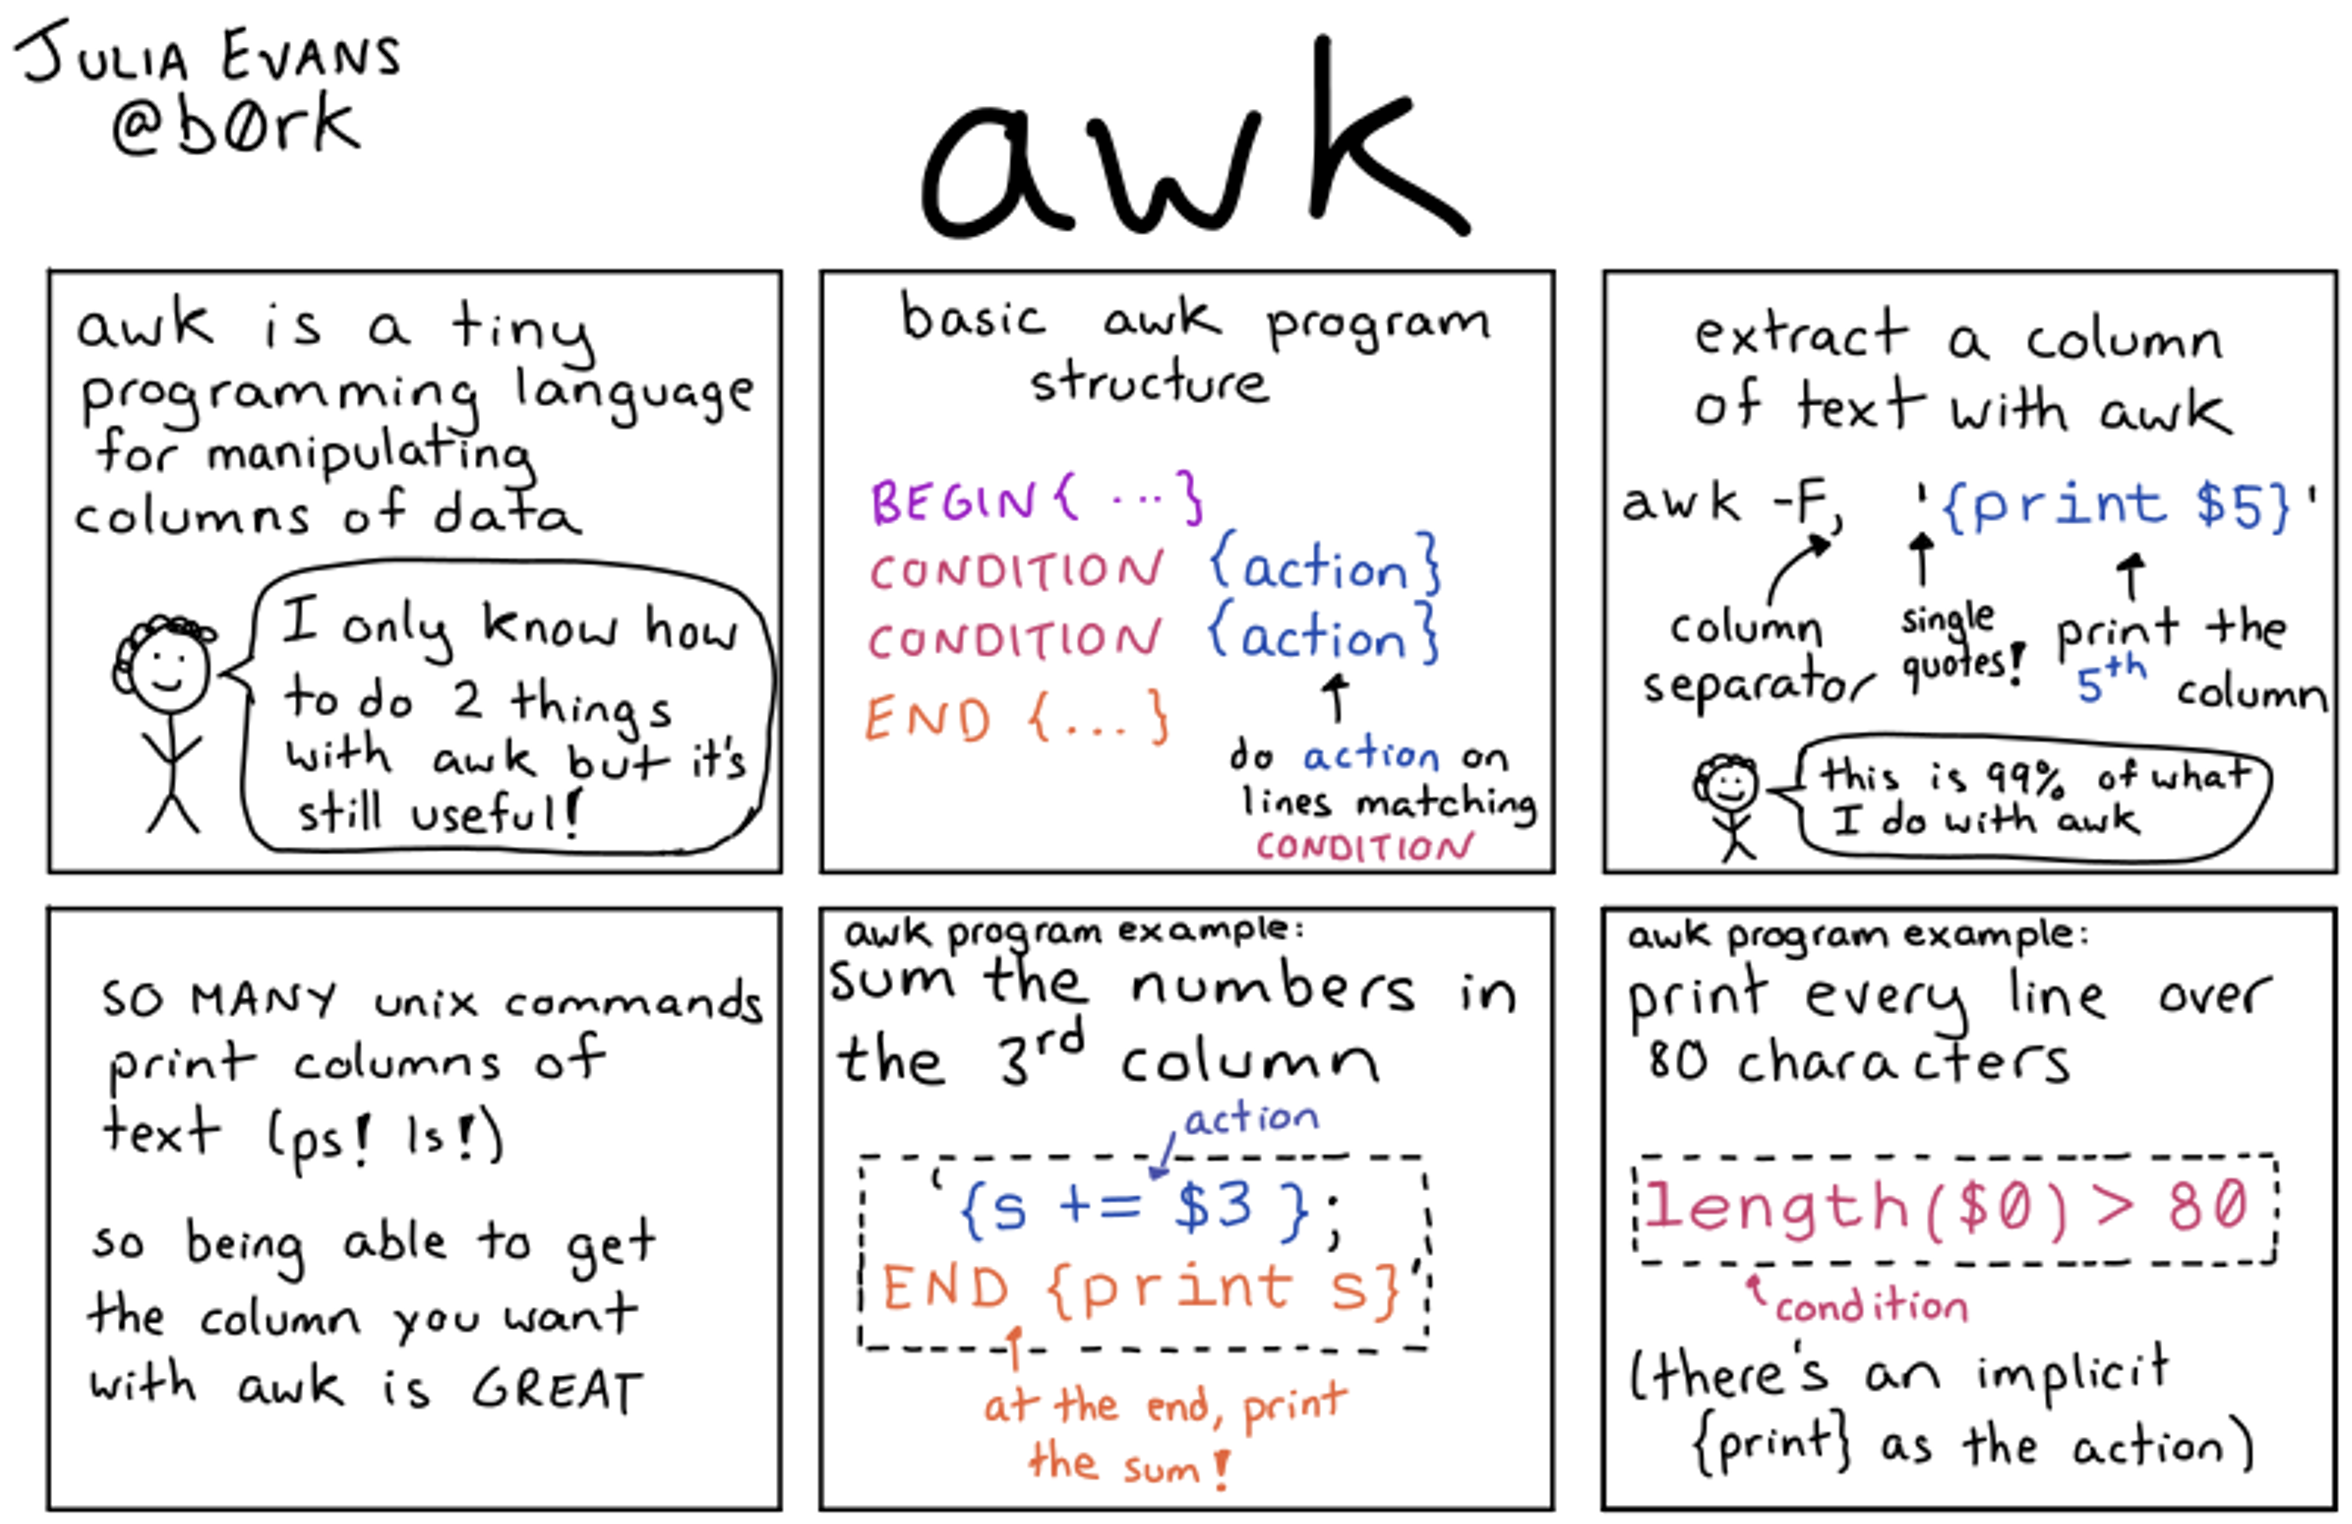 JULIA EVANS
@b0rk
awk
awk is a tiny
programming language
for manipulating
columns of data
I only know how
to do 2 things
with awk but it's
still useful!
basic awk program
structure
BEGIN { ... }
CONDITION {action}
CONDITION {action}
END {... }
do action on
lines matching
CONDITION
extract a column
of text with awk
awk -F, '{print $5}'
column
separator
single
quotes!
print the
5th column
this is 99% of what
I do with awk
SO MANY unix commands
print columns of
text (ps! ls!)
so being able to get
the column you want
with awk is GREAT
awk program example:
sum the numbers in
the 3rd column
action
'{s += $3 };
END {print s}'
at the end, print
the sum!
awk program example:
print every line over
80 characters
length($0) > 80
condition
(there's an implicit
{print} as the action)